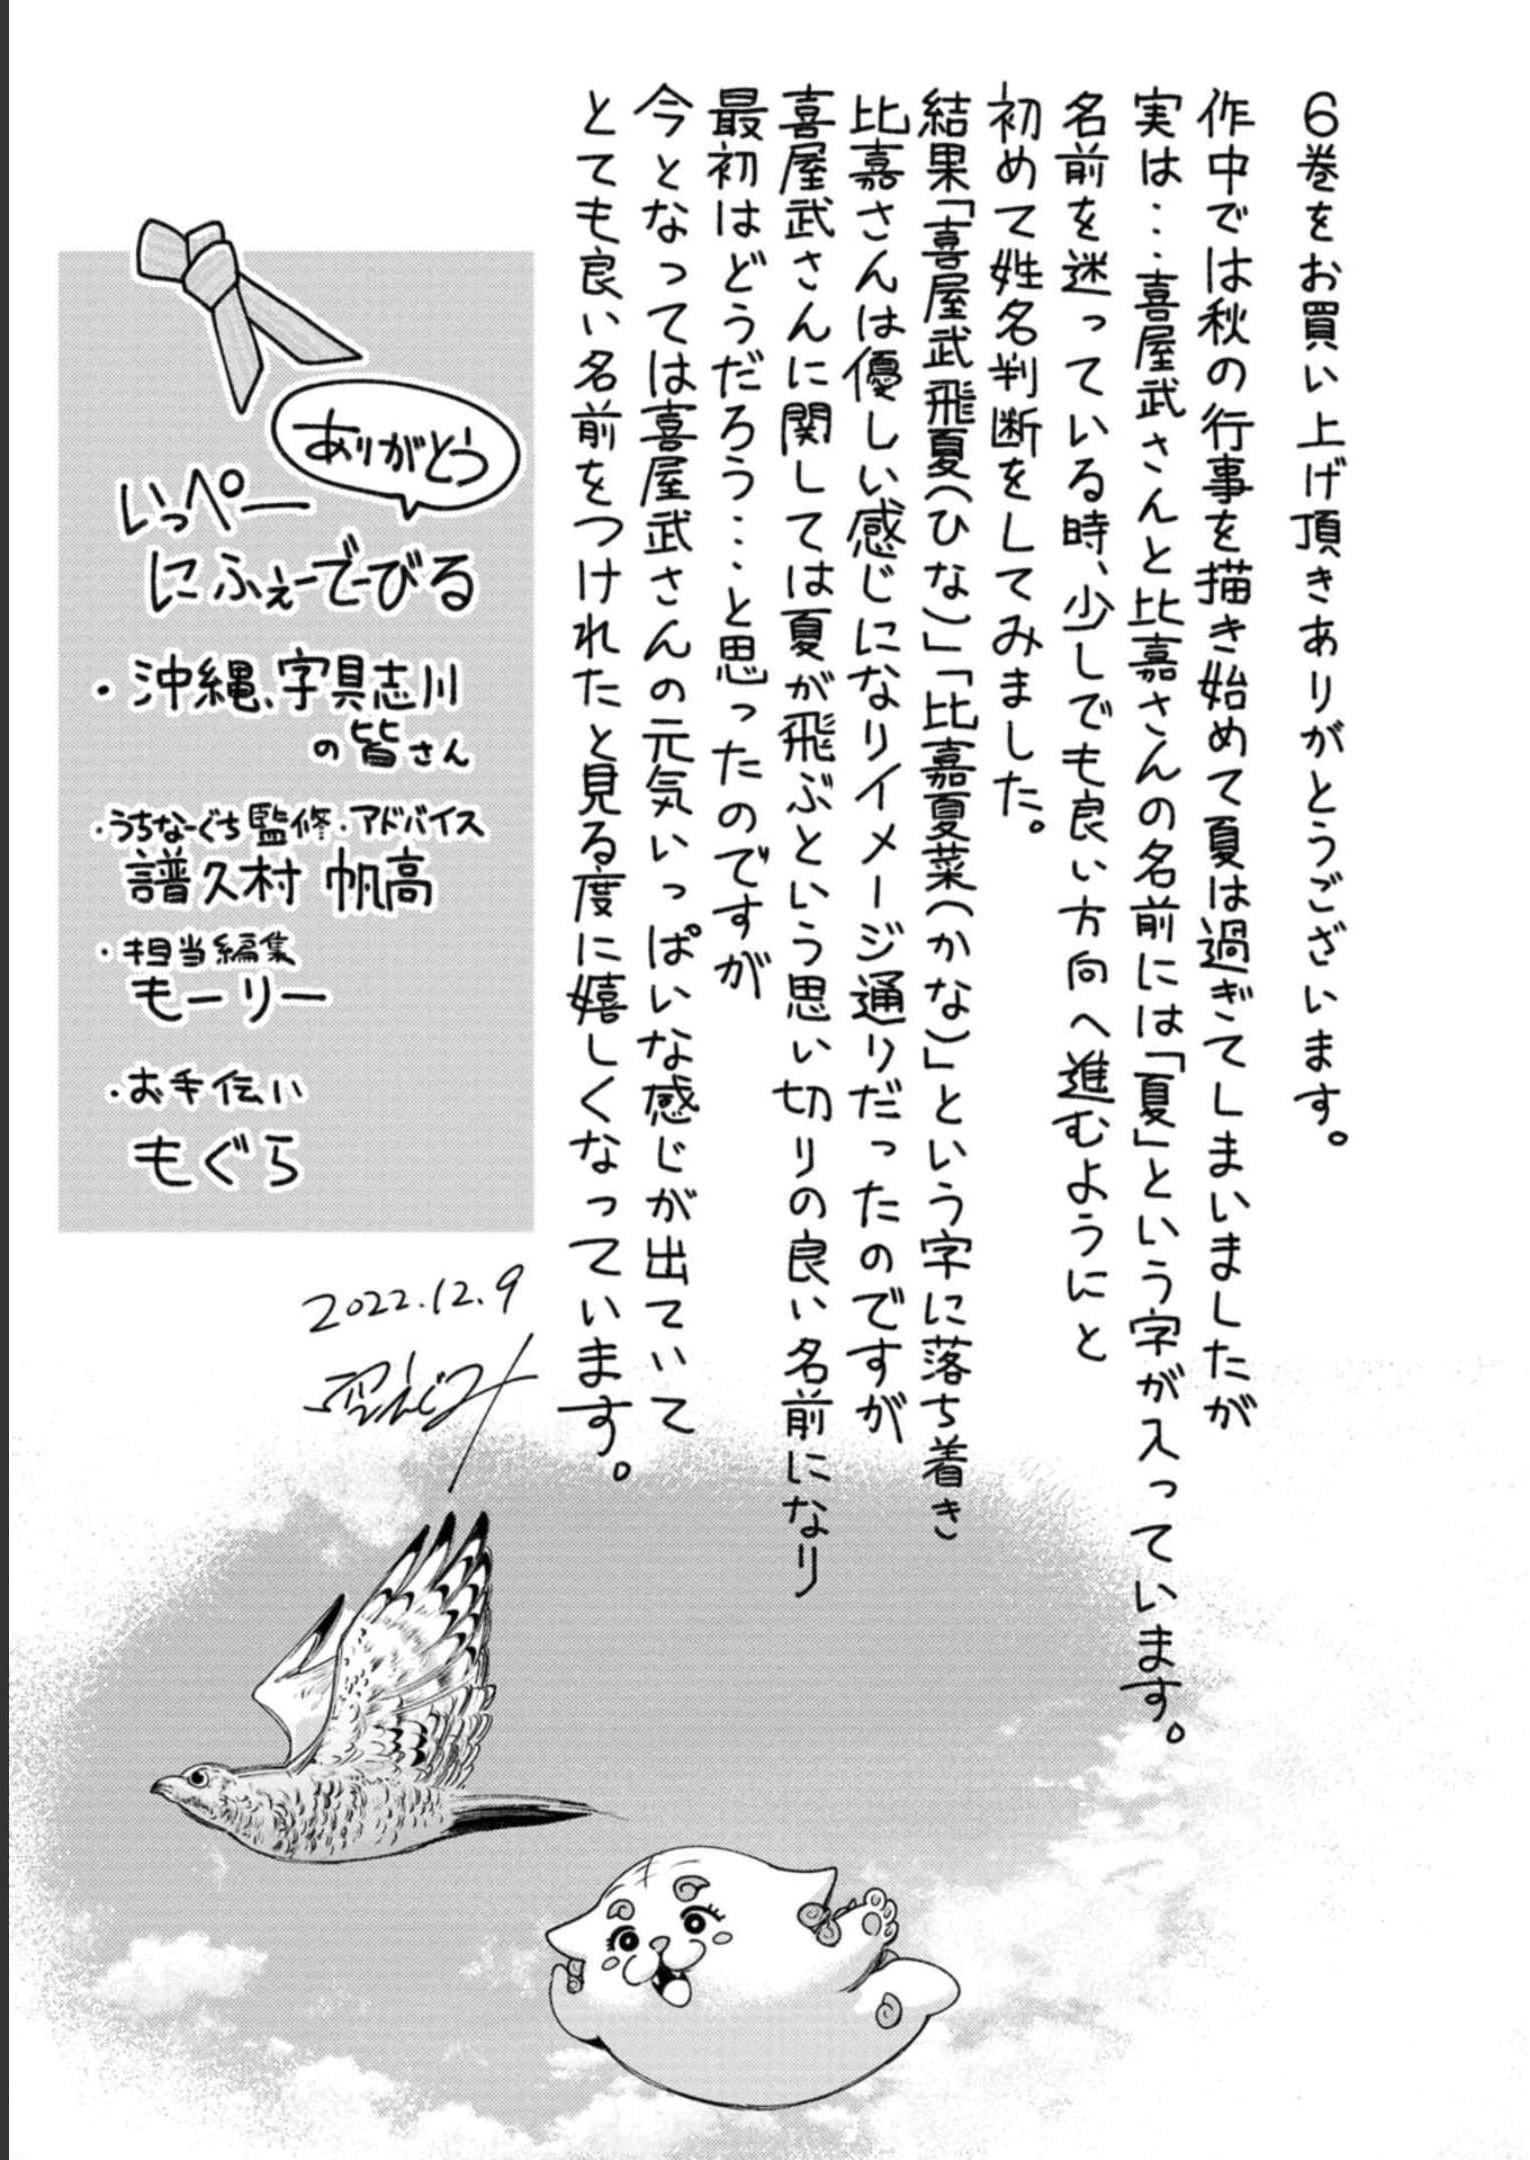 6巻をお買い上げ頂きありがとうございます。
作中では秋の行事を描き始めて夏は過ぎてしまいましたが
実は…喜屋武さんと比嘉さんの名前には「夏」という字が入っています。
名前を迷っている時、少しでも良い方向へ進むようにと
初めて姓名判断をしてみました。
結果「喜屋武飛夏(ひな)」「比嘉夏菜(かな)」という字に落ち着き
比嘉さんは優しい感じになりイメージ通りだったのですが
喜屋武さんに関しては夏が飛ぶという思い切りの良い名前になり
最初はどうだろう…と思ったのですが
今となっては喜屋武さんの元気いっぱいな感じが出ていて
とても良い名前をつけれたと見る度に嬉しくなっています。
ありがとう
いっぺー
にふぇーでーびる
・沖縄、字具志川
の皆さん
・うちなーぐち監修・アドバイス
譜久村 帆高
・担当編集
もーリー
・お手伝い
もぐら
2022.12.9